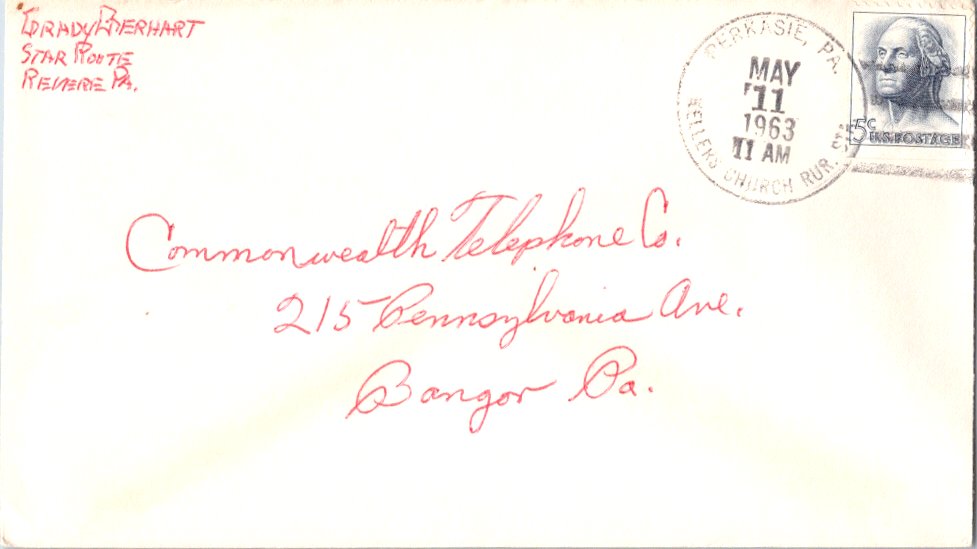 Grady Eberhart
Star Route
Revere Pa.
PERKASIE, PA.
MAY
11
1963
11 AM
KELLERS CHURCH RUR. STA.
5c U.S. POSTAGE
Commonwealth Telephone Co.
215 Pennsylvania Ave.
Bangor Pa.